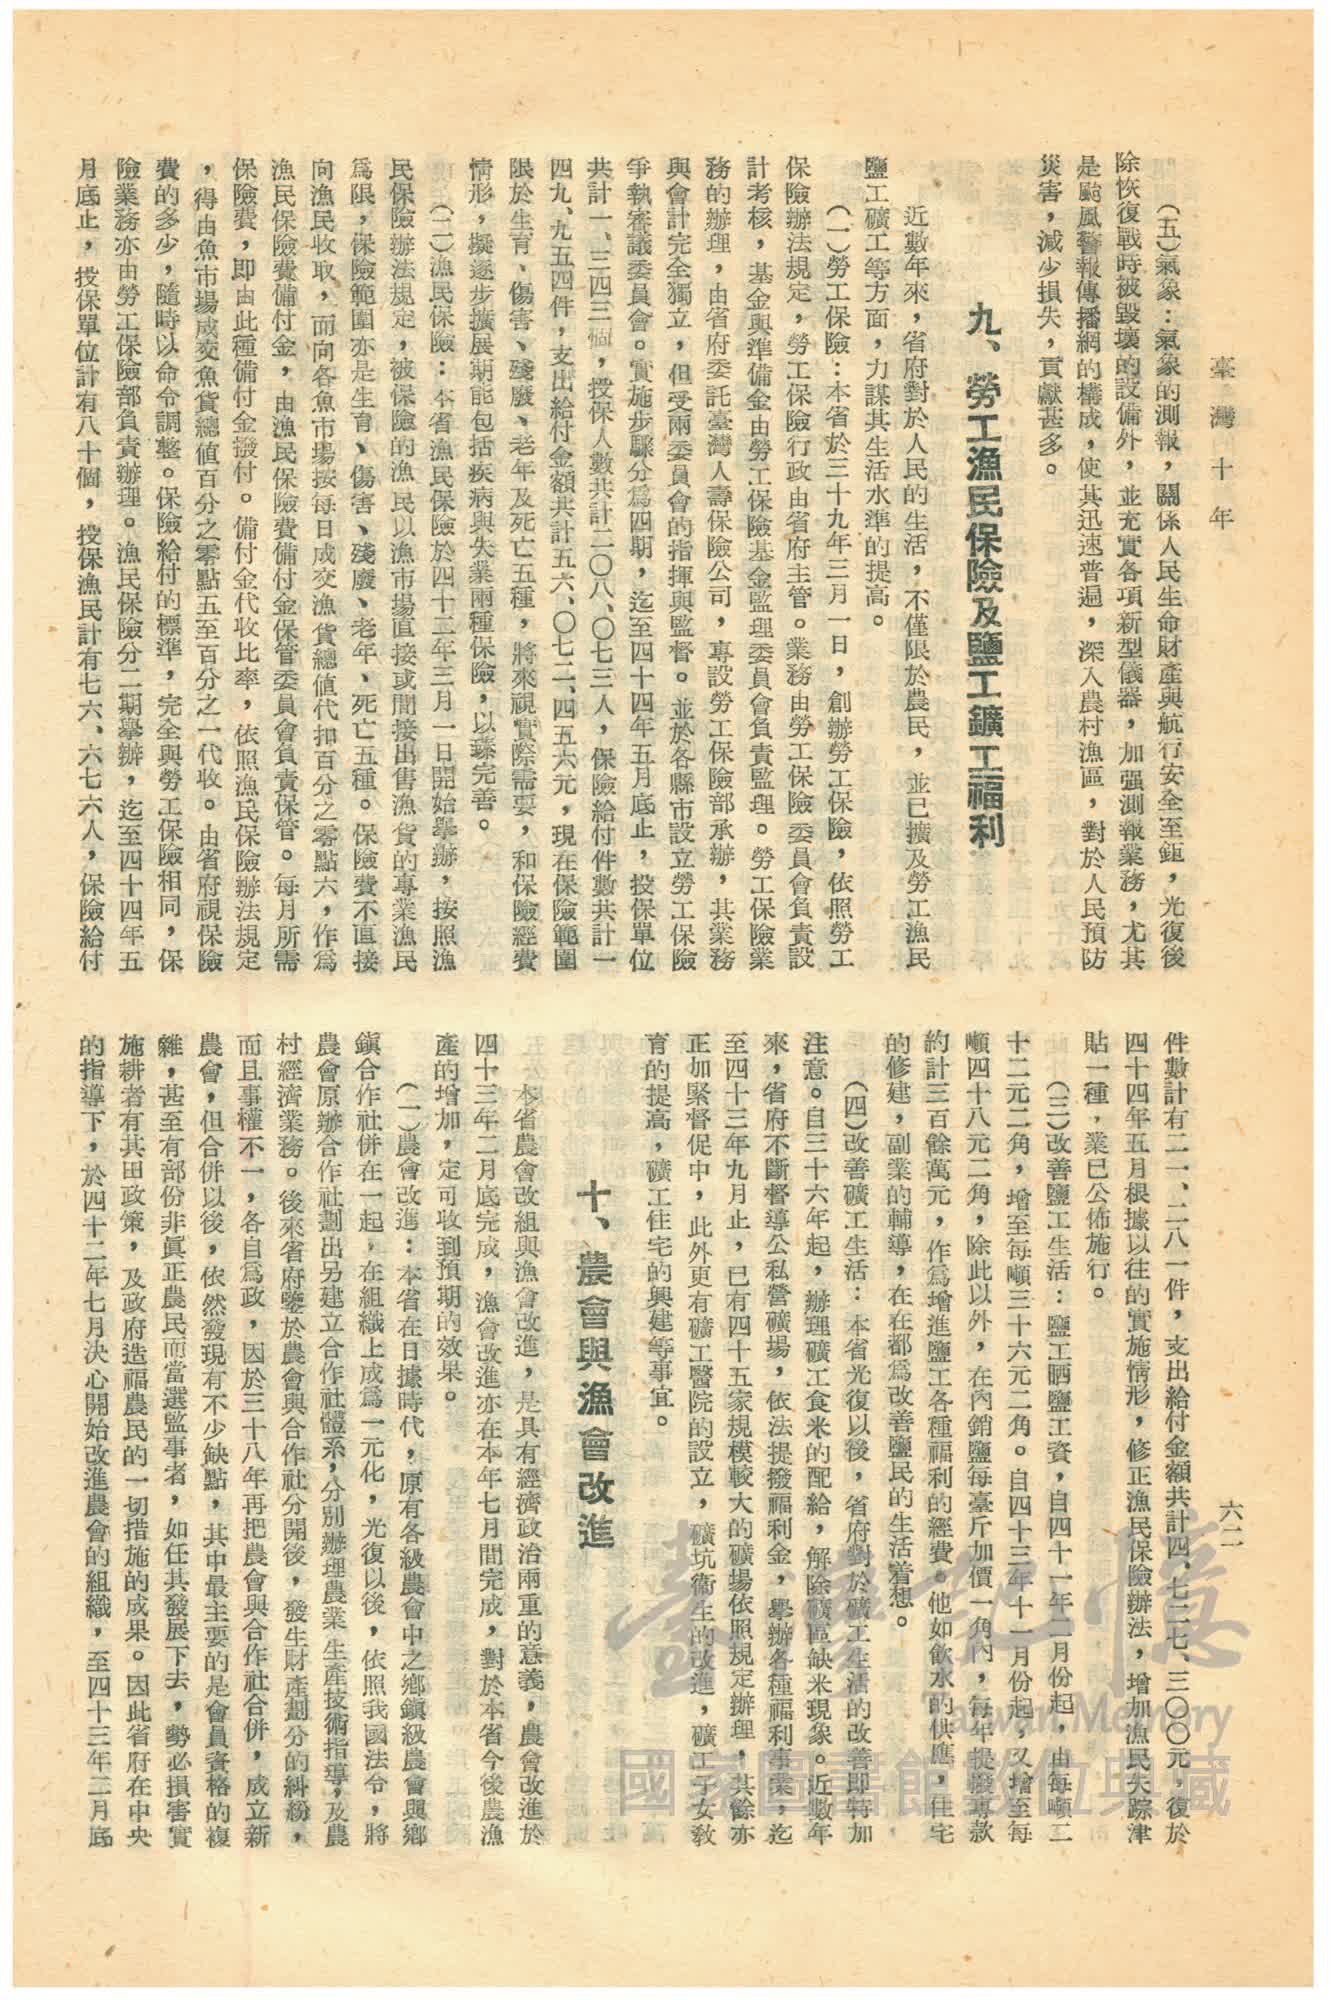 臺灣十年
六二
（五）氣象：氣象的測報，關係人民生命財產與航行安全至鉅，光復後
除恢復戰時被毀壞的設備外，並充實各項新型儀器，加强測報業務，尤其
是颱風警報傳播網的構成，使其迅速普遍，深入農村漁區，對於人民預防
災害，減少損失，貢獻甚多。
九、勞工漁民保險及鹽工鑛工福利
近數年來，省府對於人民的生活，不僅限於農民，並已擴及勞工漁民
鹽工礦工等方面，力謀其生活水準的提高。
（一）勞工保險：本省於三十九年三月一日，創辦勞工保險，依照勞工
保險辦法規定，勞工保險行政由省府主管。業務由勞工保險委員會負責設
計考核，基金與準備金由勞工保險基金監理委員會負責監理。勞工保險業
務的辦理，由省府委託臺灣人壽保險公司，專設勞工保險部承辦，其業務
與會計完全獨立，但受兩委員會的指揮與監督。並於各縣市設立勞工保險
爭執審議委員會。實施步驟分爲四期，迄至四十四年五月底止，投保單位
共計一、三四三個，投保人數共計二〇八、〇七三人，保險給付件數共計一
四九、九五四件，支出給付金額共計五六、〇七二、四五六元，現在保險範圍
限於生育、傷害、殘廢、老年及死亡五種，將來視實際需要，和保險經費
情形，擬逐步擴展期能包括疾病與失業兩種保險，以臻完善。
（二）漁民保險：本省漁民保險於四十二年三月一日開始舉辦，按照漁
民保險辦法規定，被保險的漁民以漁市場直接或間接出售漁貨的專業漁民
爲限，保險範圍亦是生育、傷害、殘廢、老年、死亡五種。保險費不直接
向漁民收取，而向各魚市場按每日成交漁貨總值代扣百分之零點六，作爲
漁民保險費備付金，由漁民保險費備付金保管委員會負責保管。每月所需
保險費，即由此種備付金撥付。備付金代收比率，依照漁民保險辦法規定
，得由魚市場成交魚貨總值百分之零點五至百分之一代收。由省府視保險
費的多少，隨時以命令調整。保險給付的標準，完全與勞工保險相同，保
險業務亦由勞工保險部負責辦理。漁民保險分二期舉辦，迄至四十四年五
月底止，投保單位計有八十個，投保漁民計有七六、六七六人，保險給付
件數計有二一、二八一件，支出給付金額共計四、七二七、三〇〇元，復於
四十四年五月根據以往的實施情形，修正漁民保險辦法，增加漁民失踪津
貼一種，業已公佈施行。
（三）改善鹽工生活：鹽工晒鹽工資，自四十一年二月份起，由每噸二
十二元二角，增至每噸三十六元二角。自四十三年十一月份起，又增至每
噸四十八元二角，除此以外，在內銷鹽每臺斤加價一角內，每年提撥專款
約計三百餘萬元，作爲增進鹽工各種福利的經費。他如飲水的供應，住宅
的修建，副業的輔導，在在都爲改善鹽民的生活着想。
（四）改善礦工生活：本省光復以後，省府對於礦工生活的改善即特加
注意。自三十六年起，辦理礦工食米的配給，解除礦區缺米現象。近數年
來，省府不斷督導公私營礦場，依法提撥福利金，舉辦各種福利事業，迄
至四十三年九月止，已有四十五家規模較大的礦場依照規定辦理，其餘亦
正加緊督促中，此外更有礦工醫院的設立，礦坑衞生的改進，礦工子女教
育的提高，礦工住宅的興建等事宜。
十、農會與漁會改進
本省農會改組與漁會改進，是具有經濟政治兩重的意義，農會改進於
四十三年二月底完成，漁會改進亦在本年七月間完成，對於本省今後農漁
產的增加，定可收到預期的效果。
（一）農會改進：本省在日據時代，原有各級農會中之鄉鎭級農會與鄉
鎭合作社併在一起，在組織上成爲一元化，光復以後，依照我國法令，將
農會原辦合作社劃出另建立合作社體系，分別辦理農業生產技術指導，及農
村經濟業務。後來省府鑒於農會與合作社分開後，發生財產劃分的糾紛，
而且事權不一，各自爲政，因於三十八年再把農會與合作社合併，成立新
農會，但合併以後，依然發現有不少缺點，其中最主要的是會員資格的複
雜，甚至有部份非眞正農民而當選監事者，如任其發展下去，勢必損害實
施耕者有其田政策，及政府造福農民的一切措施的成果。因此省府在中央
的指導下，於四十二年七月決心開始改進農會的組織，至四十三年二月底
臺灣記憶
Taiwan Memory
國家圖書館數位典藏